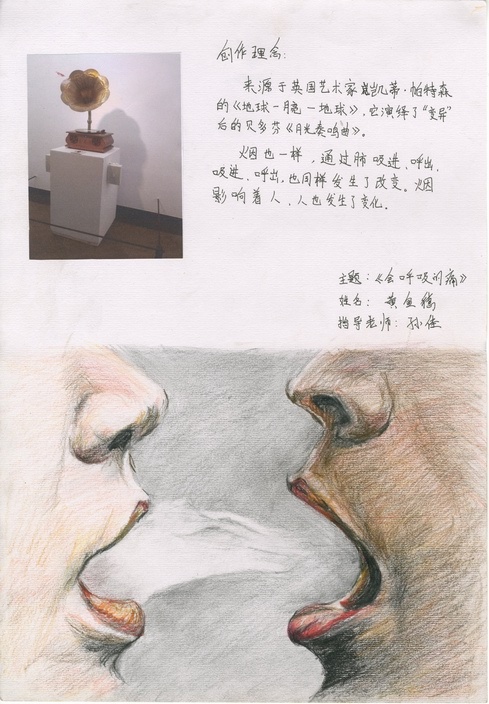 创作理念:
来源于英国艺术家凯蒂·帕特森
的《地球—月亮—地球》,它演绎了“变异”
后的贝多芬《月光奏鸣曲》。
烟也一样,通过肺吸进、呼出,
吸进、呼出,也同样发生了改变。烟
影响着人,人也发生了变化。
主题:《会呼吸的痛》
姓名:黄
指导老师:孙佳